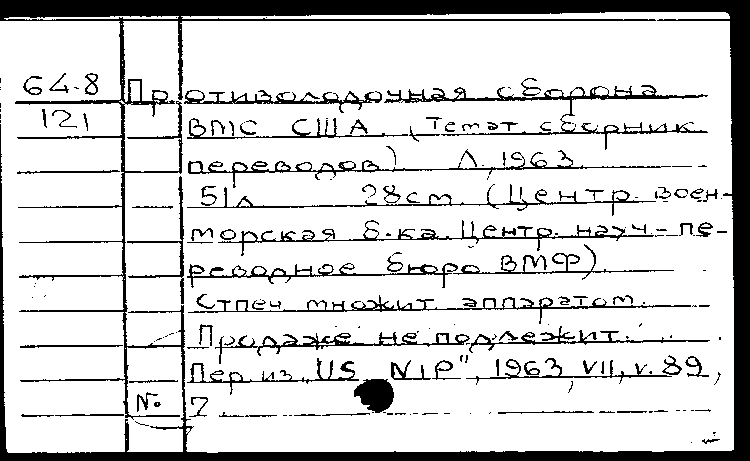 64-8 Противолодочная оборона
121 ВМС США. (Темат. сборник
переводов) Л, 1963.
51л 28см. (Центр. воен-
морская б-ка. Центр. науч-пе-
реводное бюро ВМФ).
Стпеч множит аппаратом.
Продаже не подлежит.
Пер. из "US NIP", 1963, VII, v. 89,
№ 7